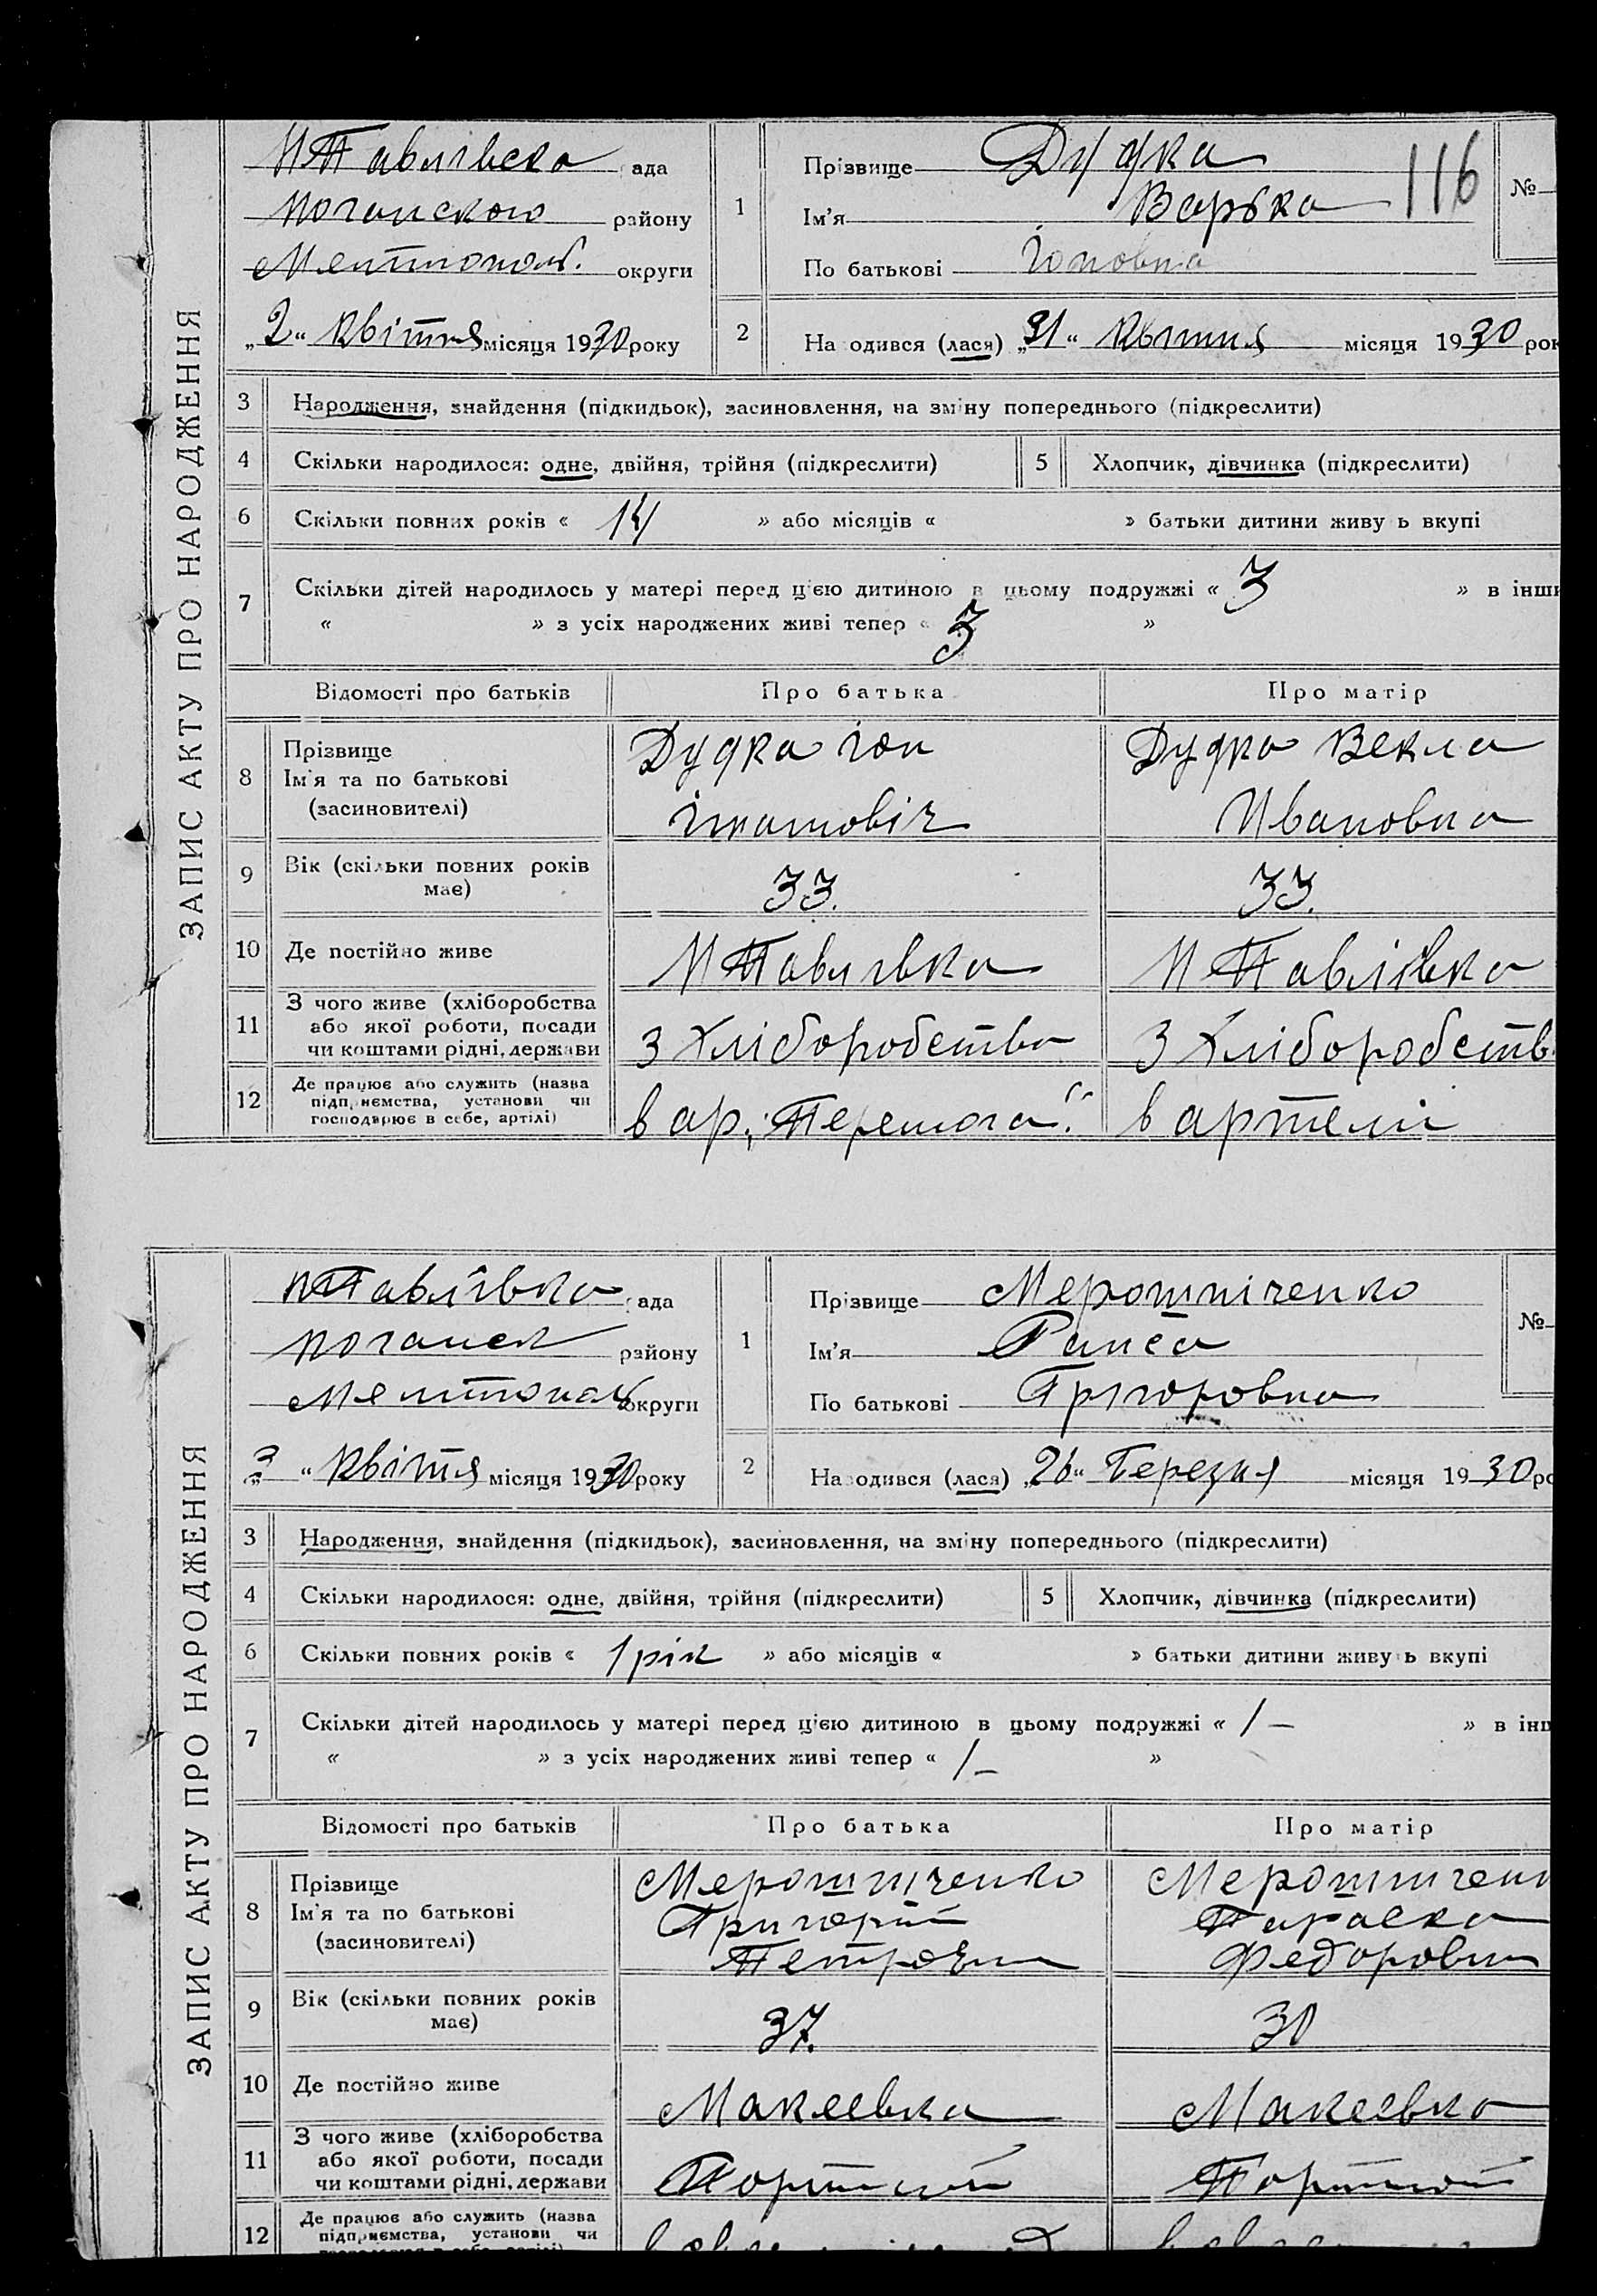 Н Павлівська рада
Ногайского району
Мелітополь. округи
„2“ Квітня місяця 1930 року
1 Прізвище Дудка
Ім'я Варька
По батькові Іоновна
116
№
2 На одився (лася) „31“ Квітня місяця 1930 рок
ЗАПИС АКТУ ПРО НАРОДЖЕННЯ
3 Народження, знайдення (підкидьок), засиновлення, на зміну попереднього (підкреслити)
4 Скільки народилося: одне, двійня, трійня (підкреслити) 5 Хлопчик, дівчинка (підкреслити)
6 Скільки повних років « 14 » або місяців « » батьки дитини живу ь вкупі
7 Скільки дітей народилось у матері перед цією дитиною в цьому подружжі « 3 » в інши
« » з усіх народжених живі тепер « 3 »
Відомості про батьків Про батька Про матір
8 Прізвище
Ім'я та по батькові
(засиновителі)
Дудка Іон
Дудка Векла
Ивановна
9 Вік (скільки повних років
має)
33. 33.
10 Де постійно живе Н Павлівка Н Павлівка
11 З чого живе (хліборобства
або якої роботи, посади
чи коштами рідні, держави
з Хліборобства З Хліборобств
12 Де працює або служить (назва
підприємства, установи чи
господарює в себе, артілі)
в ар. „Перемога“. в артелі
Н Павлівка рада
Ногайск району
Мелитопол округи
„3“ Квітня місяця 1930 року
1 Прізвище Мерошніченко
Ім'я Раиса
По батькові Грігоровна
№
2 На одився (лася) „26“ Березня місяця 1930 ро
ЗАПИС АКТУ ПРО НАРОДЖЕННЯ
3 Народження, знайдення (підкидьок), засиновлення, на зміну попереднього (підкреслити)
4 Скільки народилося: одне, двійня, трійня (підкреслити) 5 Хлопчик, дівчинка (підкреслити)
6 Скільки повних років « 1 рік » або місяців « » батьки дитини живу ь вкупі
7 Скільки дітей народилось у матері перед цією дитиною в цьому подружжі « 1 – » в інш
« » з усіх народжених живі тепер « 1 – »
Відомості про батьків Про батька Про матір
8 Прізвище
Ім'я та по батькові
(засиновителі)
Мерошниченко
Григорий
Петрович
Мерошничен
Параска
Федоровн
9 Вік (скільки повних років
має)
37. 30
10 Де постійно живе Макеевка Макеевка
11 З чого живе (хліборобства
або якої роботи, посади
чи коштами рідні, держави
Портной Портной
12 Де працює або служить (назва
підприємства, установи чи